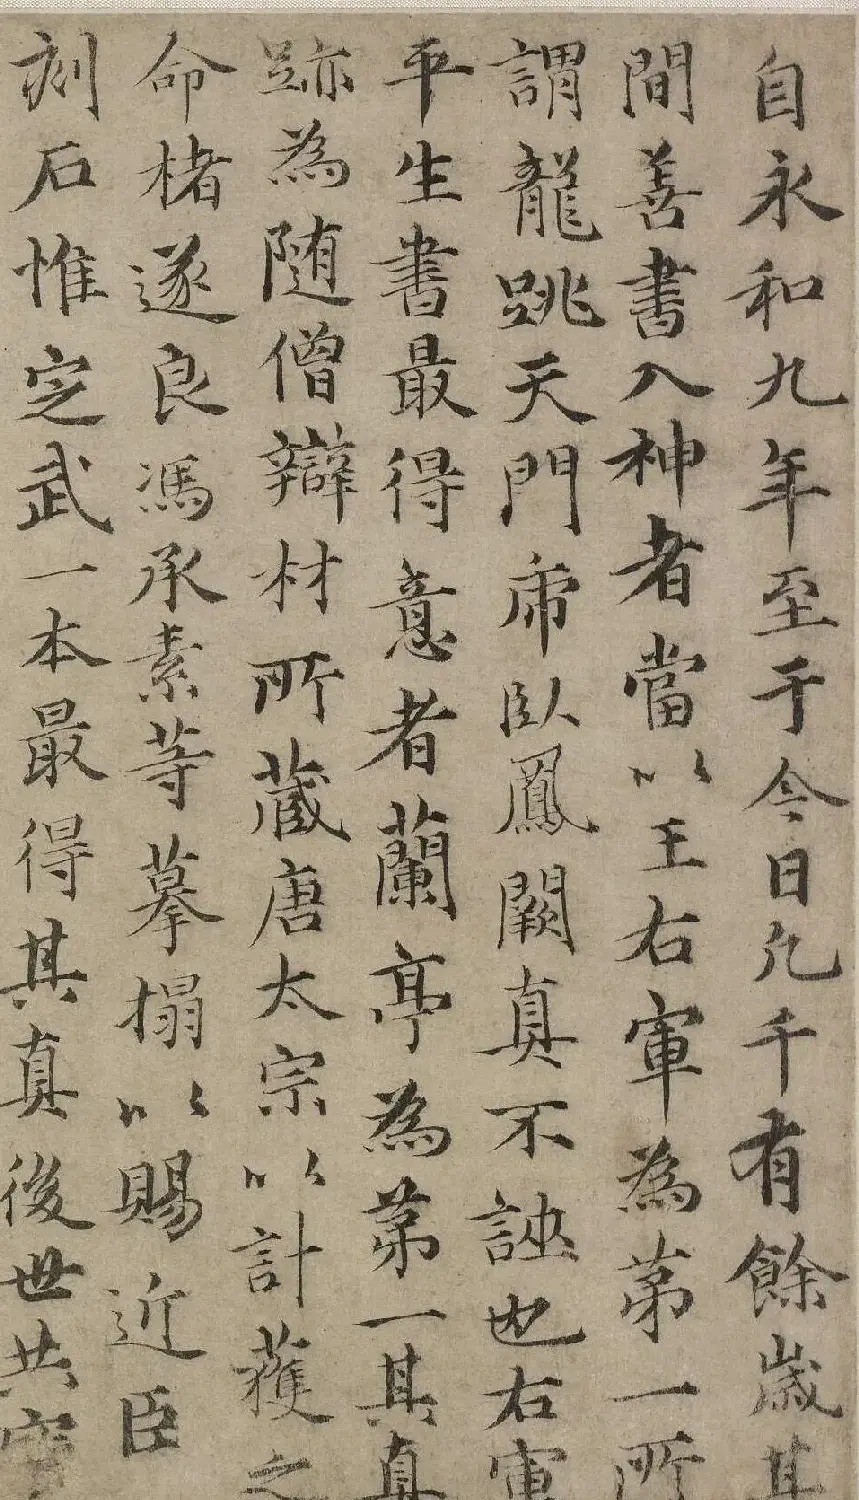 自永和九年至于今日凡千有餘歲其
間善書入神者當以王右軍為第一所
謂龍跳天門虎臥鳳闕真不誣也右軍
平生書最得意者蘭亭為第一其真
跡為随僧辯材所藏唐太宗以計獲之
命楮遂良馮承素等摹搨以賜近臣
刻石惟定武一本最得其真後世共寶